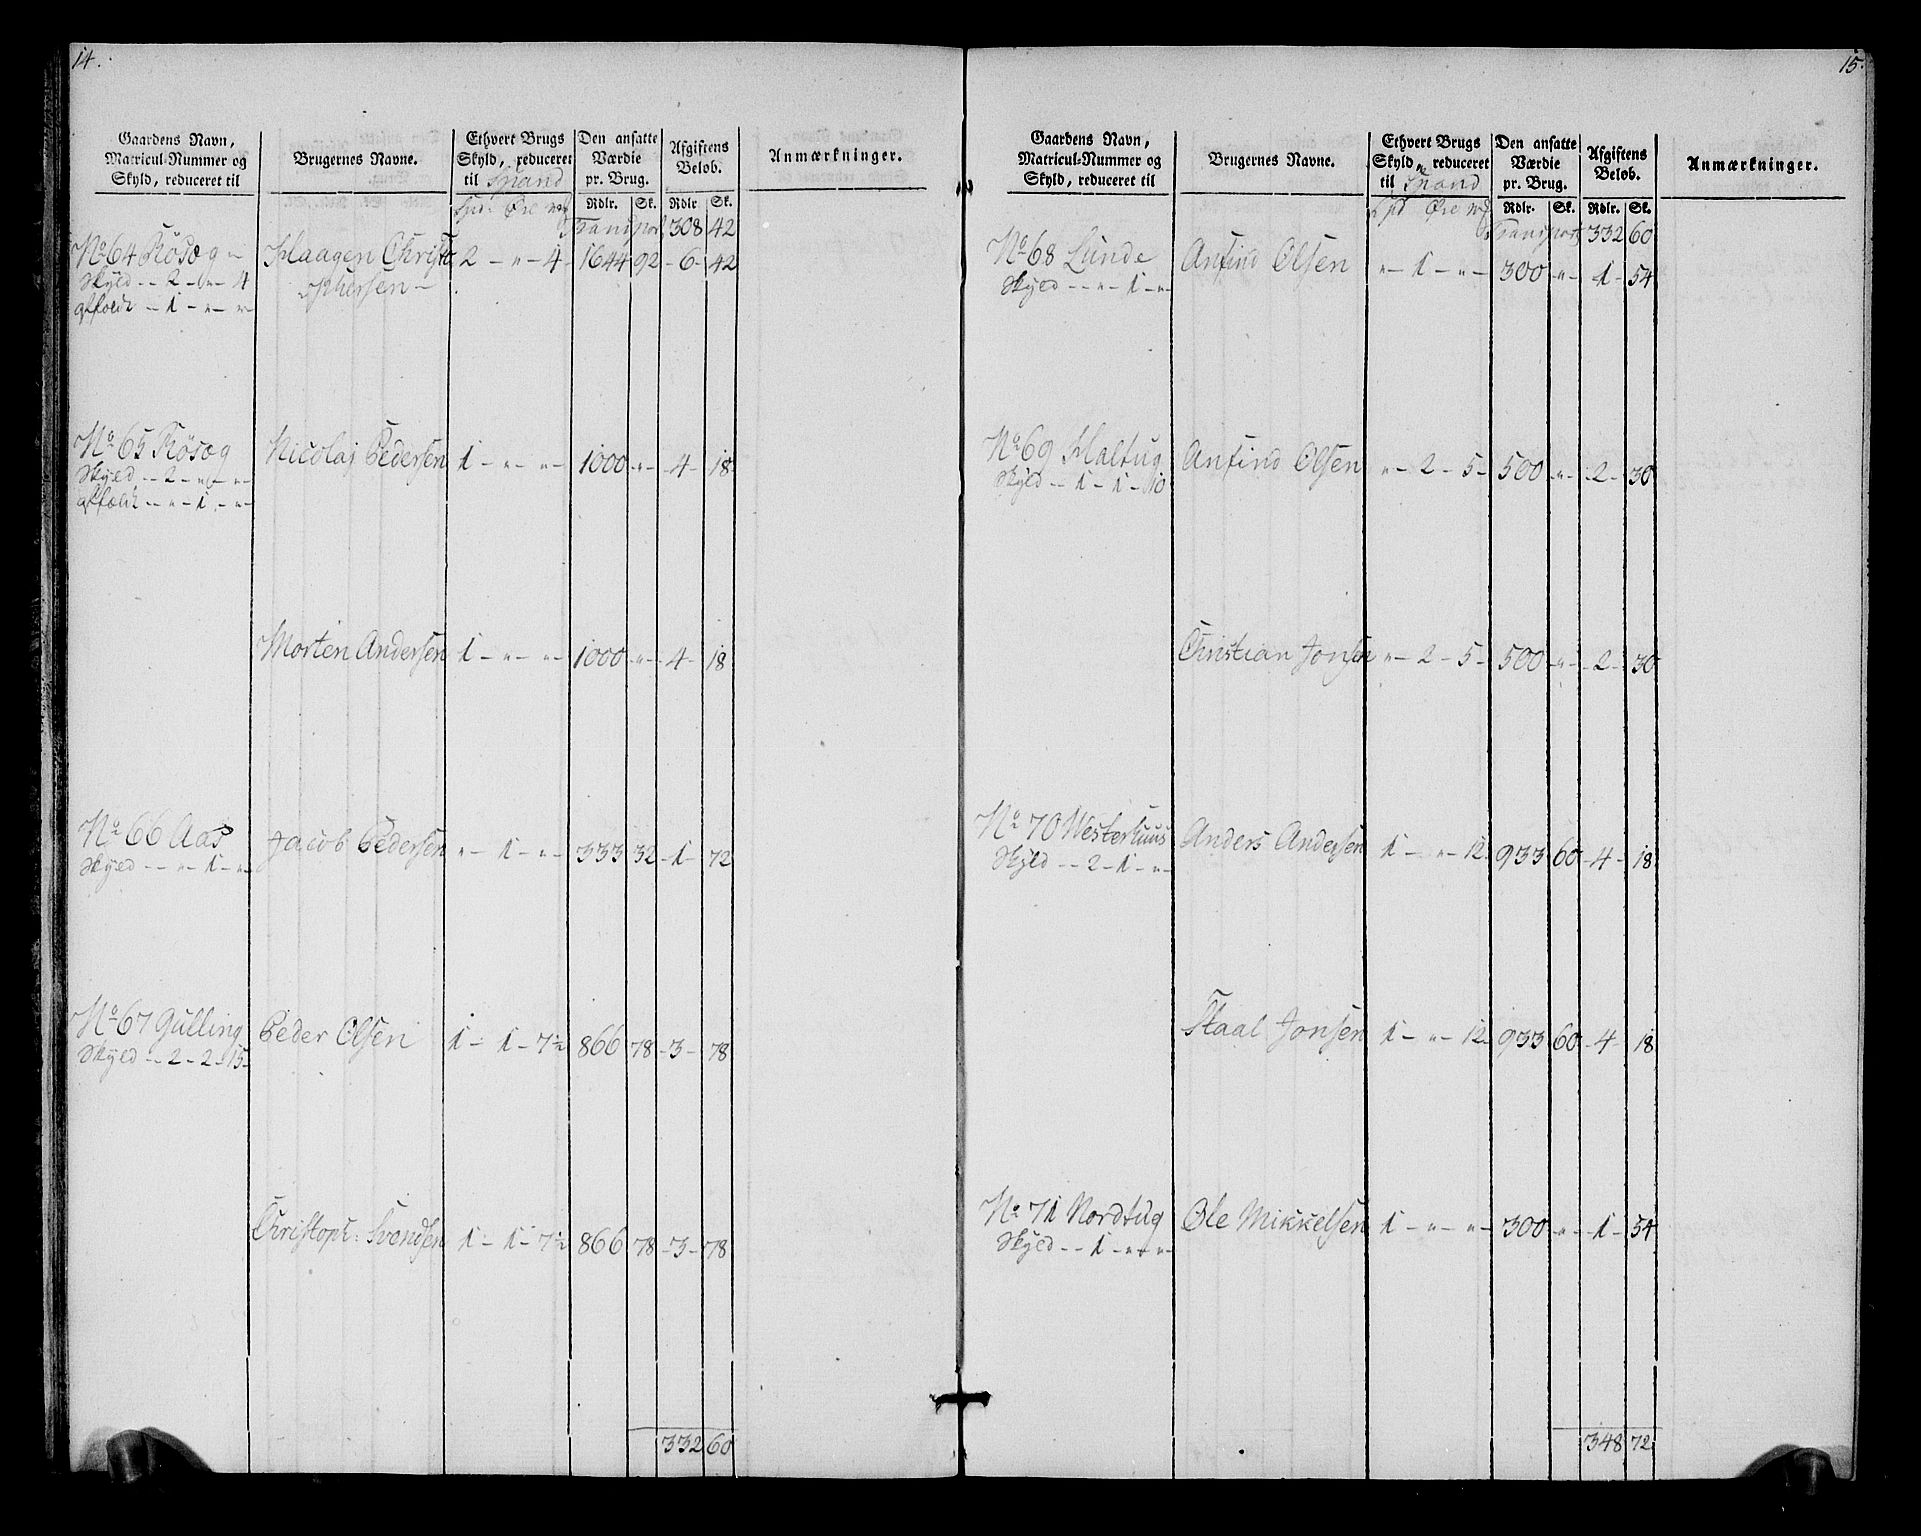 14.
Gaardens Navn, Matricul-Nummer og Skyld, reduceret til
Brugernes Navne.
Ethvert Brugs Skyld, reduceret til Spand
Den ansatte Værdie pr. Brug.
Afgiftens Beløb.
Anmærkninger.
Rdlr. Sk. Rdlr Sk.
Spd: Øre Transport 308 42
No 64 Røsæg Haagen Christo 2 - " - 4 - 1644 92 - 6 - 42
Skyld -- 2 - " - 4 phersen -
affældt -- 1 - " - " -
No 65 Røsæg Nicolaj Pedersen 1 - " - " - 1000 - " - 4 - 18
Skyld -- 2 - " - " -
affældt -- " - 1 - " -
Morten Andersen 1 - " - " - 1000 - " - 4 - 18
No 66 Aas Jacob Pedersen " - 1 - " - 333 32 - 1 - 72
Skyld -- " - 1 - " -
No 67 Gulling Peder Olsen 1 - 1 - 7½ 866 78 - 3 - 78
Skyld -- 2 - 2 - 15 -
Christoph: Svendsen 1 - 1 - 7½ 866 78 - 3 - 78
332 60
15.
Gaardens Navn, Matricul-Nummer og Skyld, reduceret til
Brugernes Navne.
Ethvert Brugs Skyld, reduceret til Spand
Den ansatte Værdie pr. Brug.
Afgiftens Beløb.
Anmærkninger.
Rdlr. Sk. Rdlr. Sk.
Spd Øre Transport 332 60
No 68 Lunde Anfind Olsen " - 1 - " - 300 - " - 1 - 54
Skyld -- " - 1 - "
No 69 Haltug Anfind Olsen " - 2 - 5 - 500 - " - 2 - 30
Skyld -- 1 - 1 - 10
Christian Jonsen " - 2 - 5 - 500 - " - 2 - 30
No 70 Westerhuus Anders Andersen 1 - " - 12 - 933 60 - 4 - 18
Skyld -- 2 - 1 - " -
Staal Jonsen 1 - " - 12 - 933 60 - 4 - 18
No 71 Nordtug Ole Mikkelsen 1 - " - " - 300 - " - 1 - 54
Skyld -- 1 - " - " -
348 72